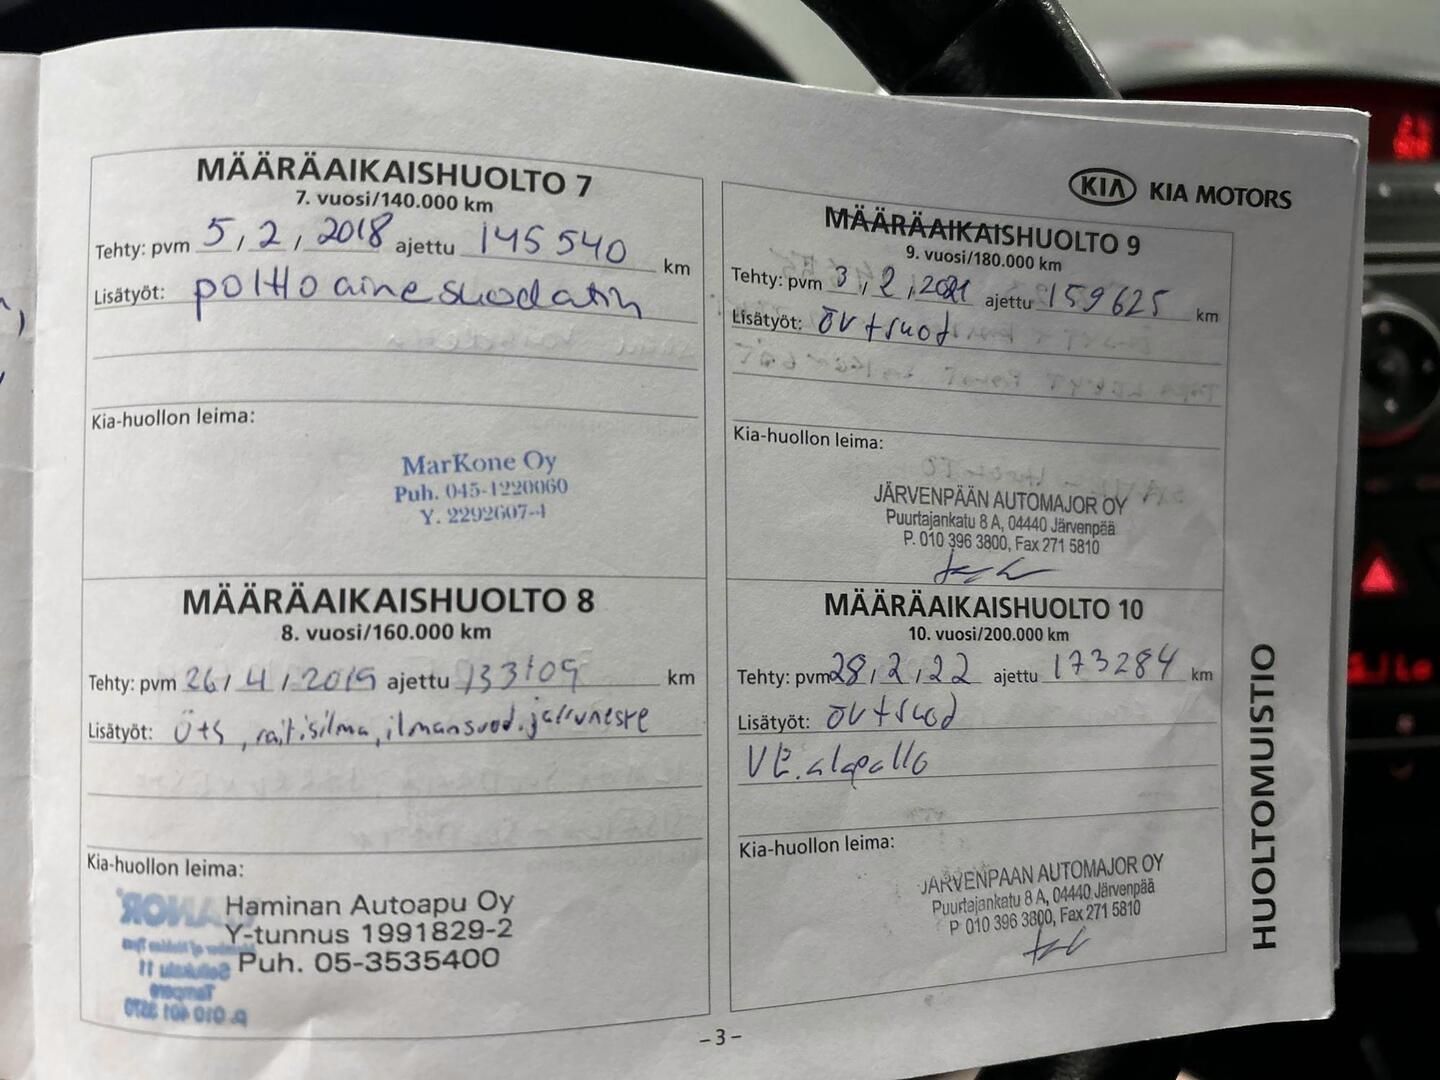 MÄÄRÄAIKAISHUOLTO 7
7. vuosi/140.000 km
Tehty: pvm 5, 2, 2018 ajettu 145 540 km
Lisätyöt: polttoainesuodatin
Kia-huollon leima:
MarKone Oy
Puh. 045-1220060
Y. 2292607-4
MÄÄRÄAIKAISHUOLTO 8
8. vuosi/160.000 km
Tehty: pvm 26, 4, 2019 ajettu 153109 km
Lisätyöt: Öts, raitisilma, ilmansuod. jarruneste
Kia-huollon leima:
Haminan Autoapu Oy
Y-tunnus 1991829-2
Puh. 05-3535400
KIA KIA MOTORS
MÄÄRÄAIKAISHUOLTO 9
9. vuosi/180.000 km
Tehty: pvm 3, 2, 2021 ajettu 159625 km
Lisätyöt: öv+suod
Kia-huollon leima:
JÄRVENPÄÄN AUTOMAJOR OY
Puurtajankatu 8 A, 04440 Järvenpää
P. 010 396 3800, Fax 271 5810
MÄÄRÄAIKAISHUOLTO 10
10. vuosi/200.000 km
Tehty: pvm 28, 2, 22 ajettu 173284 km
Lisätyöt: öv+suod
VE. alapallo
Kia-huollon leima:
JÄRVENPÄÄN AUTOMAJOR OY
Puurtajankatu 8 A, 04440 Järvenpää
P 010 396 3800, Fax 271 5810
HUOLTOMUISTIO
– 3 –